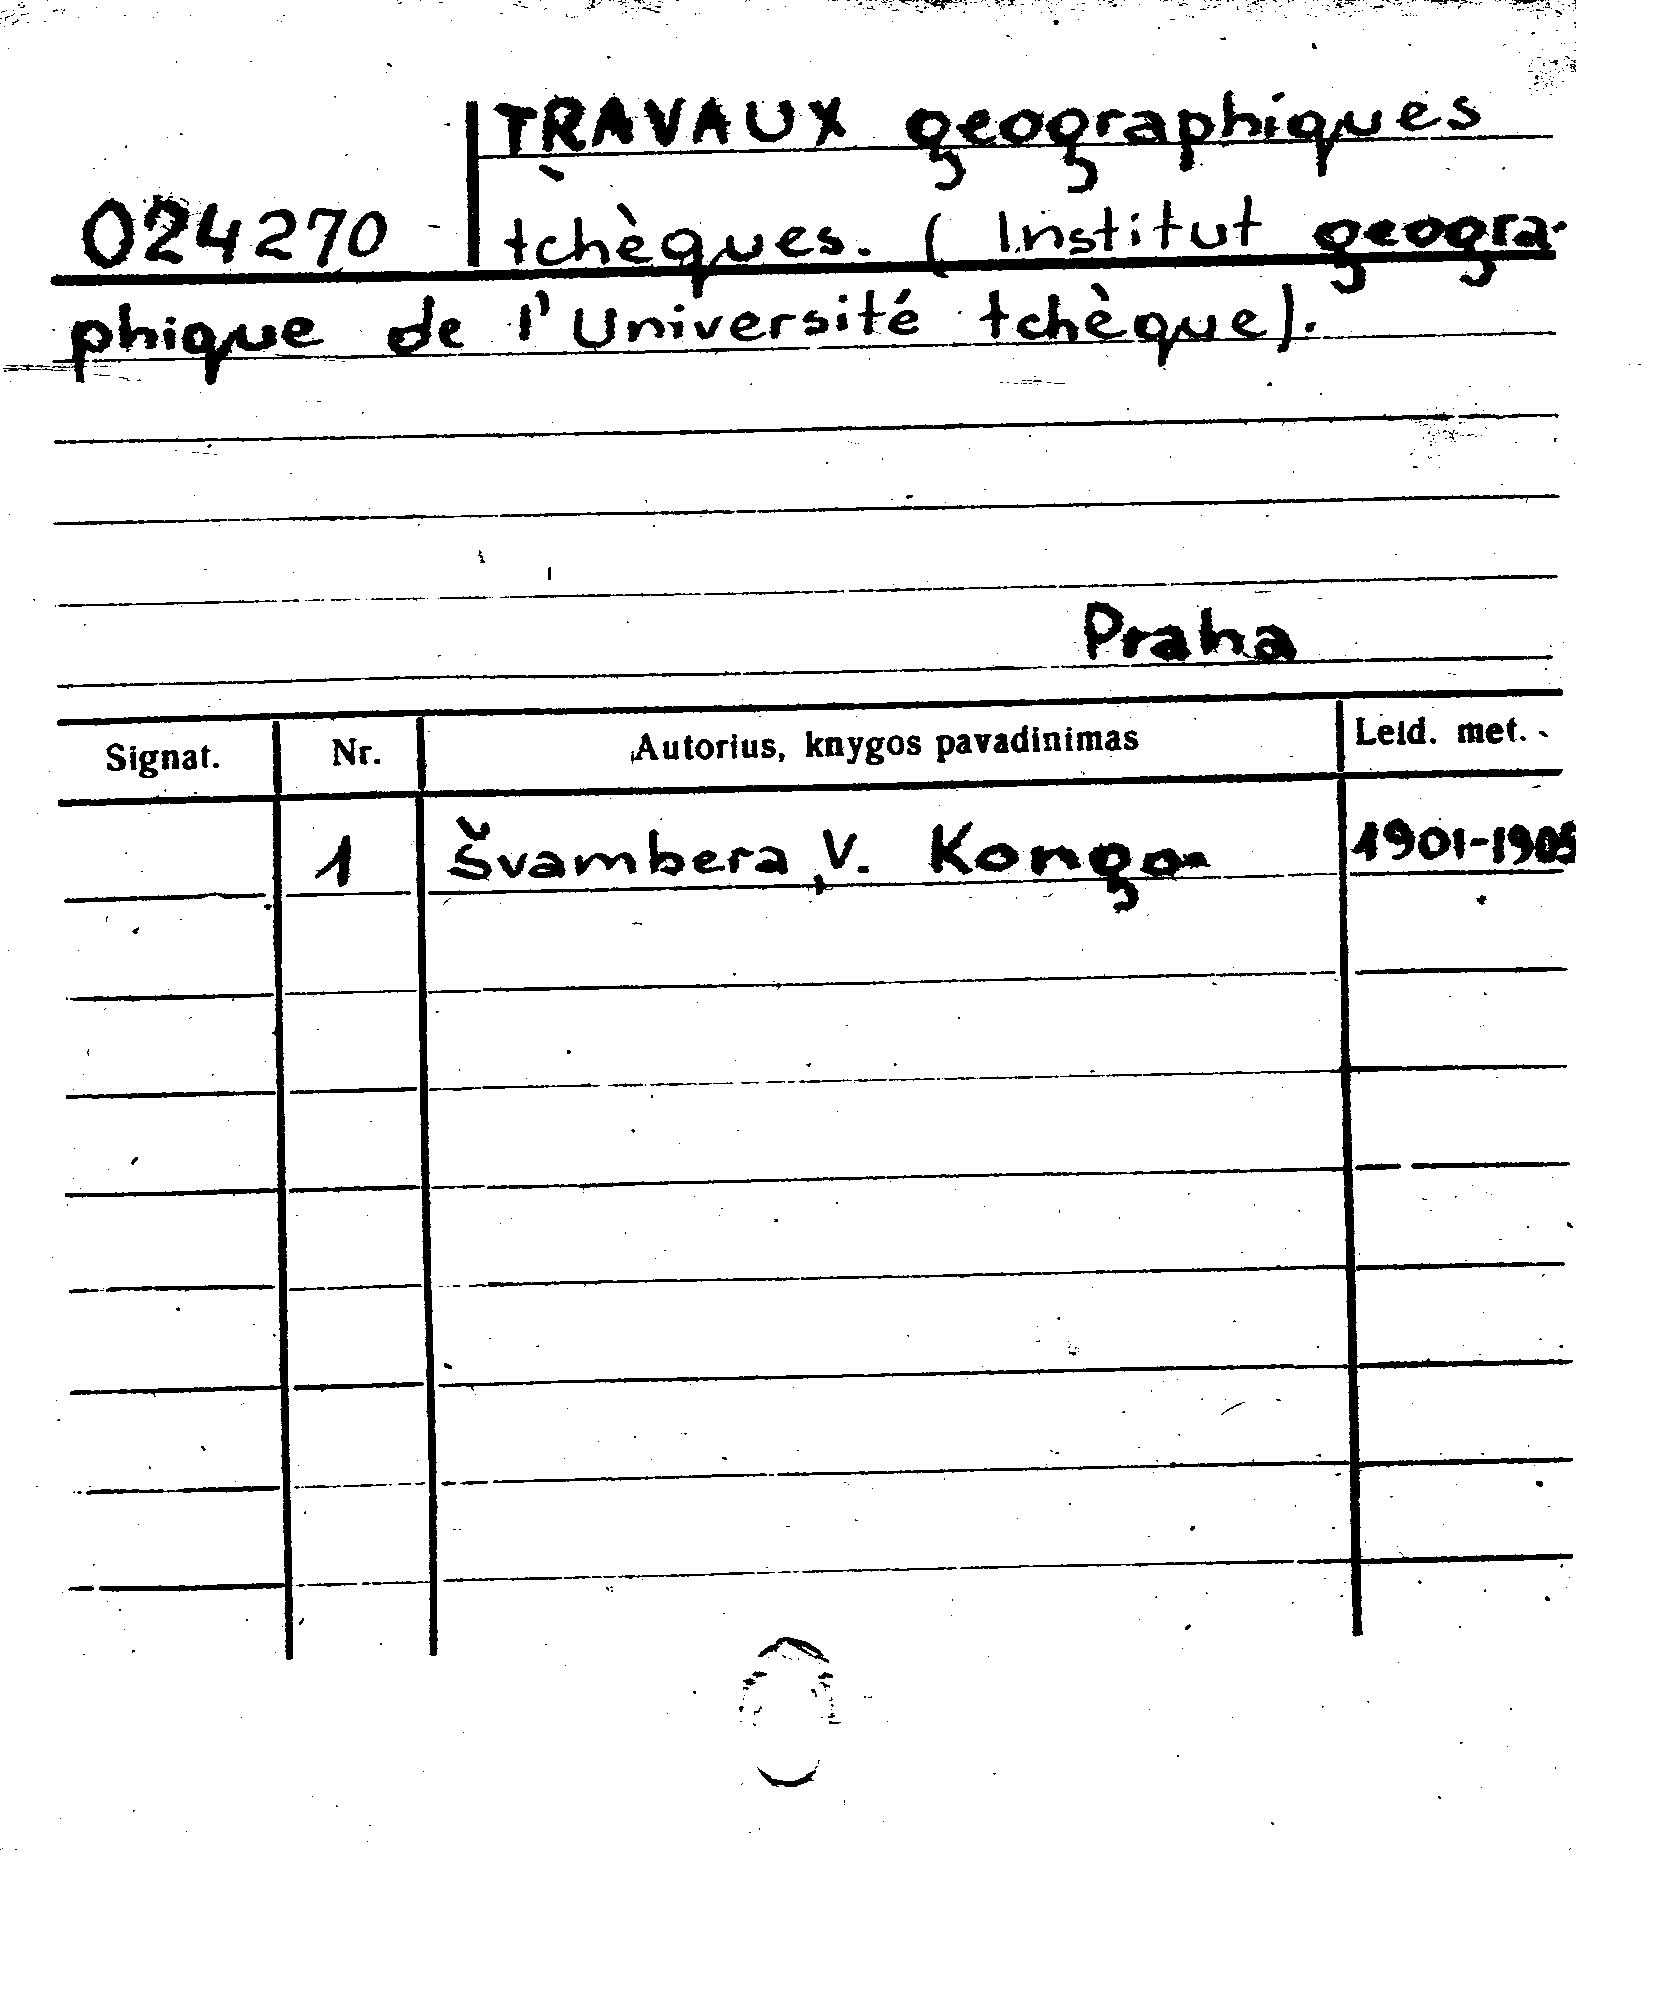 TRAVAUX geographiques
024270 tchèques. (Institut geogra-
phique de l'Université tchèque).
Praha
Signat. Nr. Autorius, knygos pavadinimas Leid. met.
1 Švambera, V. Kongo 1901-1905